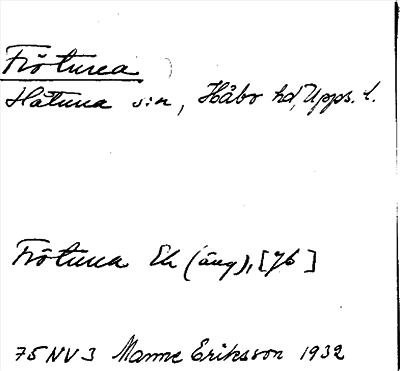 Frötuna
Håtuna s:n, Håbo hd, Upps. l.
Frötuna Ek (äng), [Jb]
75 NV 3 Manne Eriksson 1932